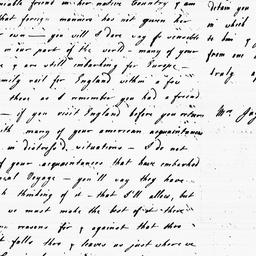 friend in her native Country & am
that foreign manners has not given her
own — you will I dare say for
in our part of the world — many of your
& are still embarking for Europe —
family sail for England within a few
there as I remember you had a friend
— if you visit England before you return
with many of your american acquaintances
in distress'd situations — I do not
of your acquaintances that have embarked
Voyage — you'll say they have
thinking of it — that I'll allow, but
we must make the best of it — there
reasons for & against that thro
it falls thro & leaves us just where we
detain you
in which
to him &
from one
truly
Mrs Jay